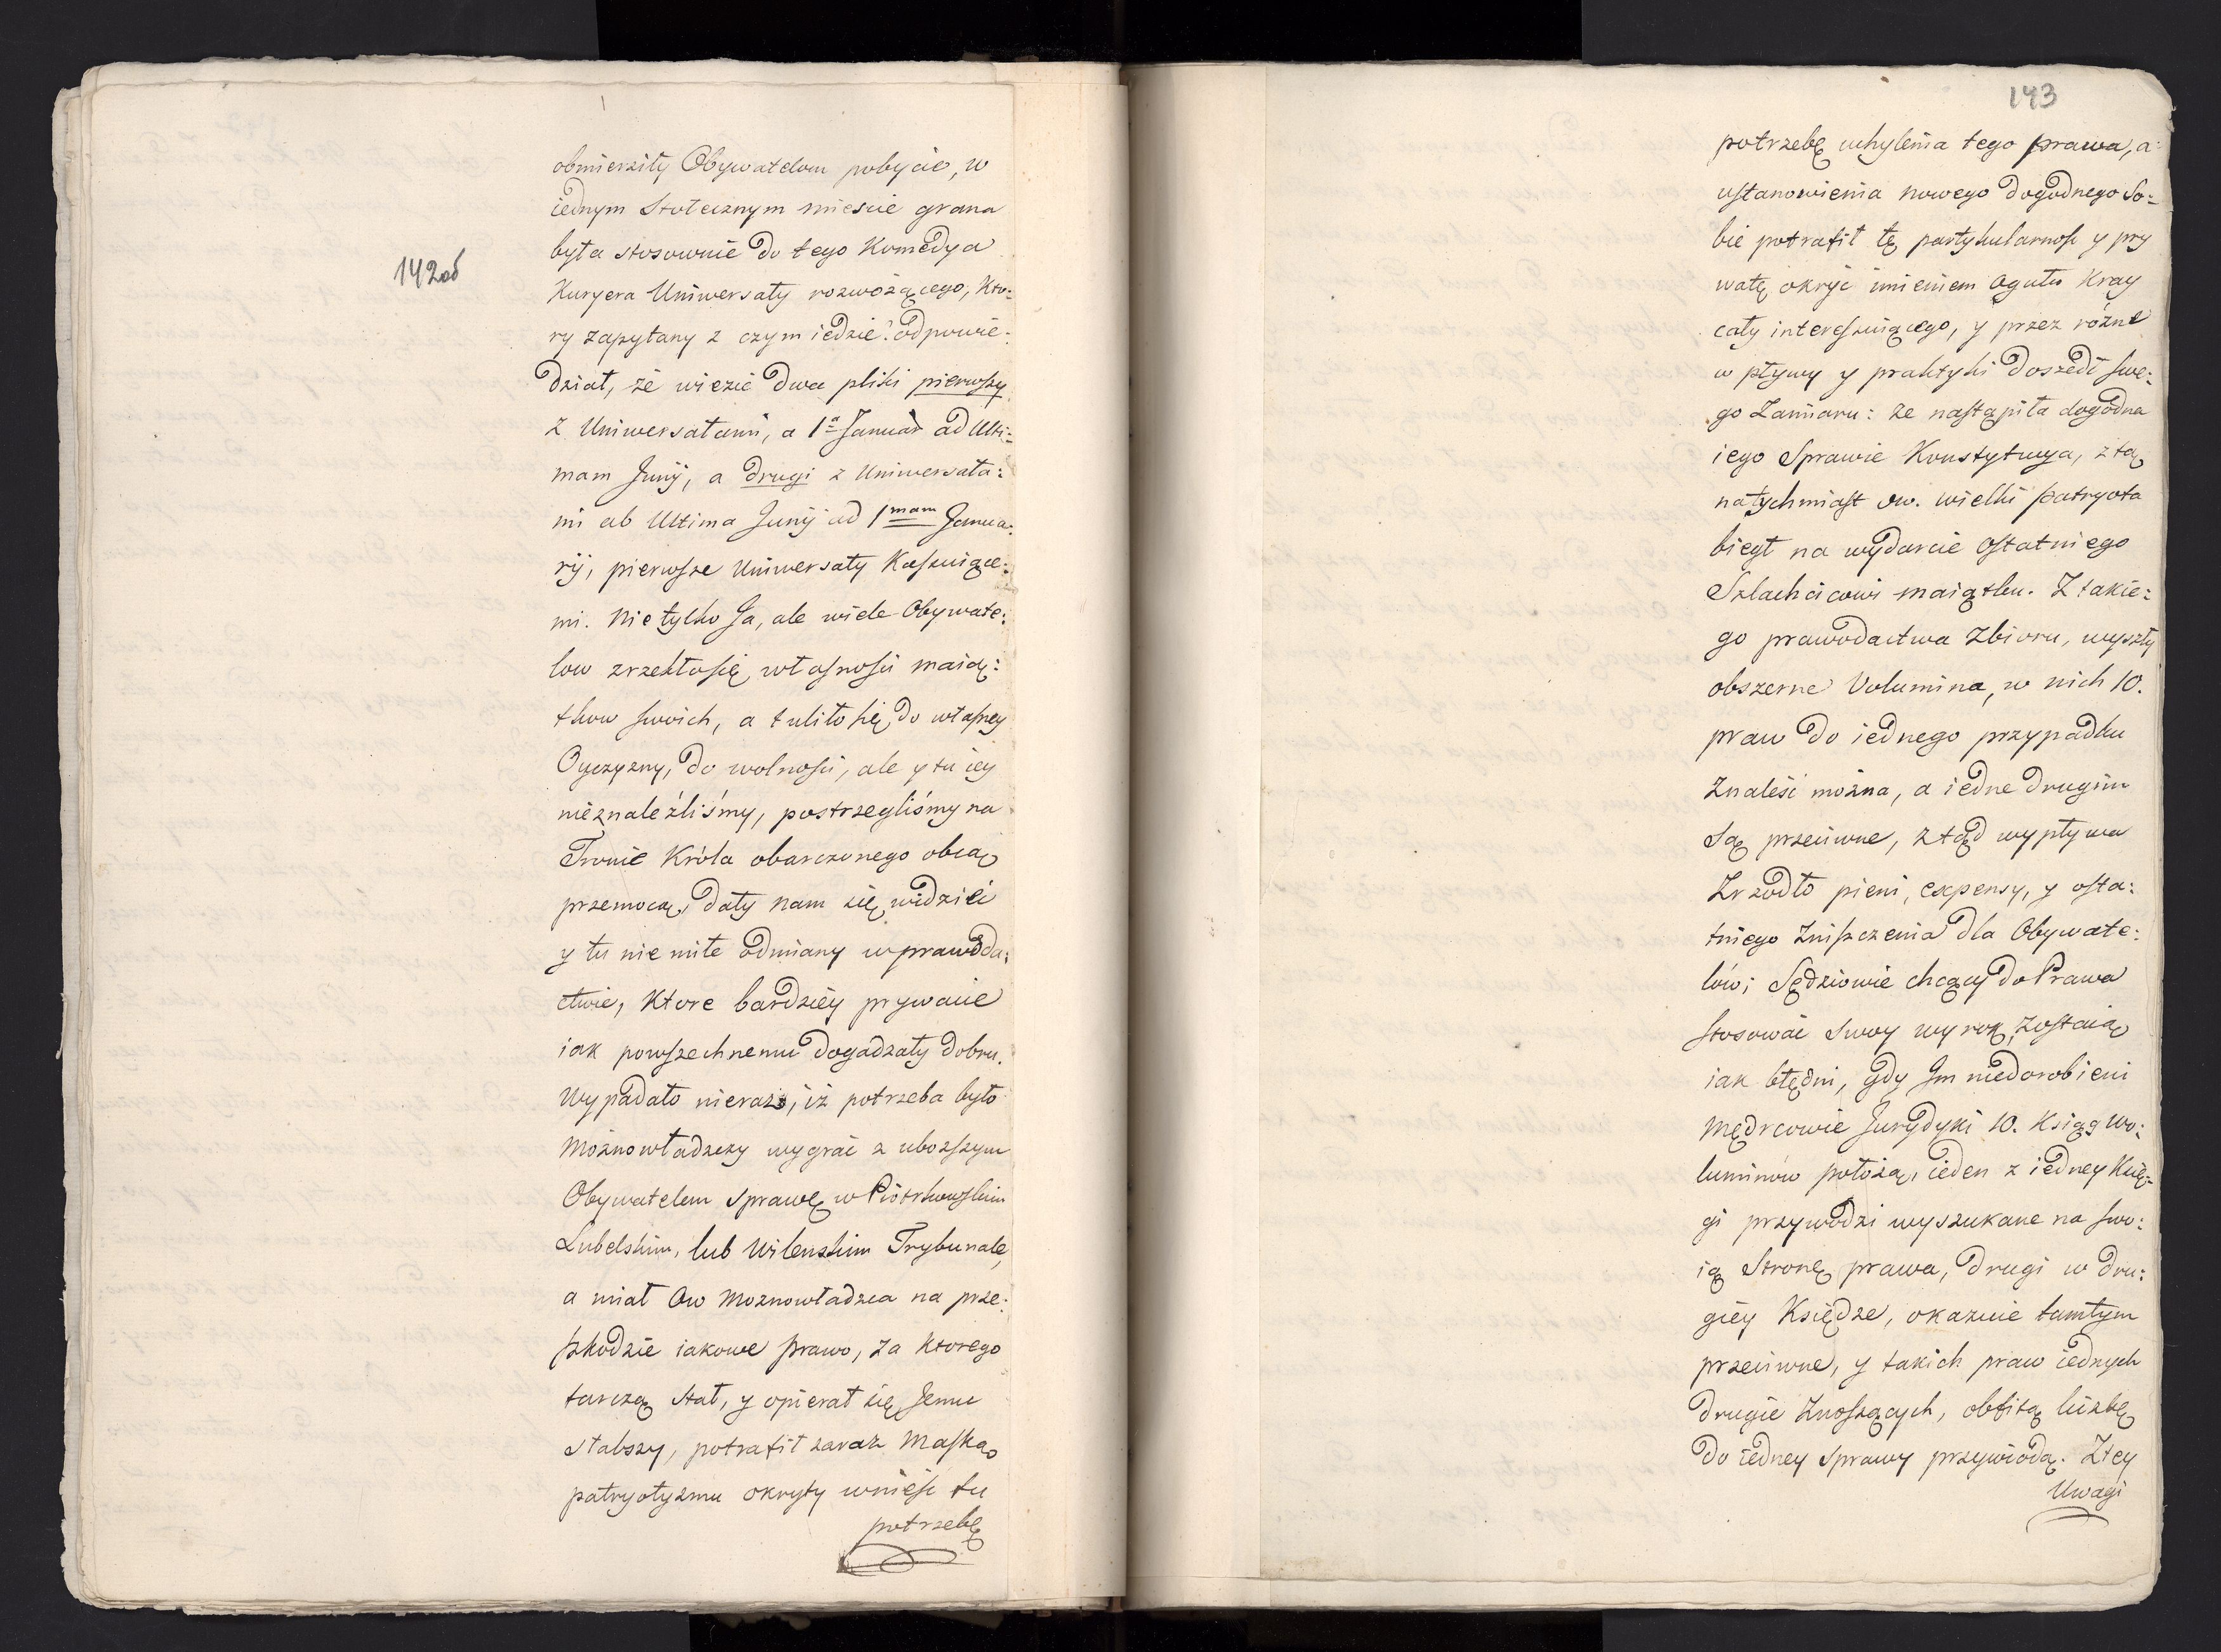 142об
obmierziły Obywatelom pobycie, w
iednym Stołecznym mieście grana
była stosownie do tego Komedya
Kuryera Uniwersały rozwożącego, Kto:
ry zapytany z czym iedzie? odpowie:
dział, że wiezie dwa pliki pierwszy
z Uniwersałami, a 1ª Januar ad Ulti:
mam Junij, a drugi z Uniwersała:
mi ab Ultima Junij ad 1mam Janua:
rij, pierwsze Uniwersały Kassuiące:
mi. Nie tylko Ja, ale wiele Obywate:
low zrzekło się własności maią:
tkow swoich, a tuliło się do własney
Oyczyzny, do wolności, ale y tu iey
nieznaleźliśmy, postrzegliśmy na
Tronie Króla obarczonego obcą
przemocą, dały nam się widzieć
y tu nie miłe odmiany w prawoda:
ctwie, Ktore bardziey prywacie
iak powszechnemu dogadzały dobru.
Wypadało nieraz, iż potrzeba było
Możnowładzcy wygrać z uboższym
Obywatelem Sprawę w Piotrkowskim
Lubelskim, lub Wilenskim Trybunale,
a miał Ow Moznowładzca na prze:
szkodzie iakowe prawo, za Ktorego
tarczą stał, y opierał się Jemu
słabszy, potrafił zaraz Maską
patryotyzmu okryty wnieść tu
potrzebę
143
potrzebę uchylenia tego prawa, a
ustanowienia nowego dogodnego So:
bie potrafił tę partykularność y pry
watę okryć imieniem Ogułu Kray
cały interessuiącego, y przez różne
w pływy y praktyki doszedł swe:
go Zamiaru: że nastąpiła dogodna
iego Sprawie Konstytucya, z tą
natychmiast ow. wielki patryota
biegł na wydarcie ostatniego
Szlachcicowi maiątku. Z takie:
go prawodactwa Zbioru, wyszły
obszerne Volumina, w nich 10.
praw do iednego przypadku
Znaleść można, a iedne drugim
Są przeciwne, ztąd wypływa
Zrzodło pieni, expensy, y osta:
tniego Zniszczenia dla Obywate:
lów; Sędziowie chcący do Prawa
stosować swoy wyrok, zostaią
iak błędni, gdy Im niedorobieni
Mędrcowie Jurydyki 10. Ksiąg wo:
luminów położą, ieden z iedney Księ:
gi przywodzi wyszukane na swo:
ią Stronę prawa, drugi w dru:
giey Księdze, okazuie tamtym
przeciwne, y takich praw iednych
drugie Znoszących, obfitą liczbę
do iedney Sprawy przywiodą. Z tey
Uwagi